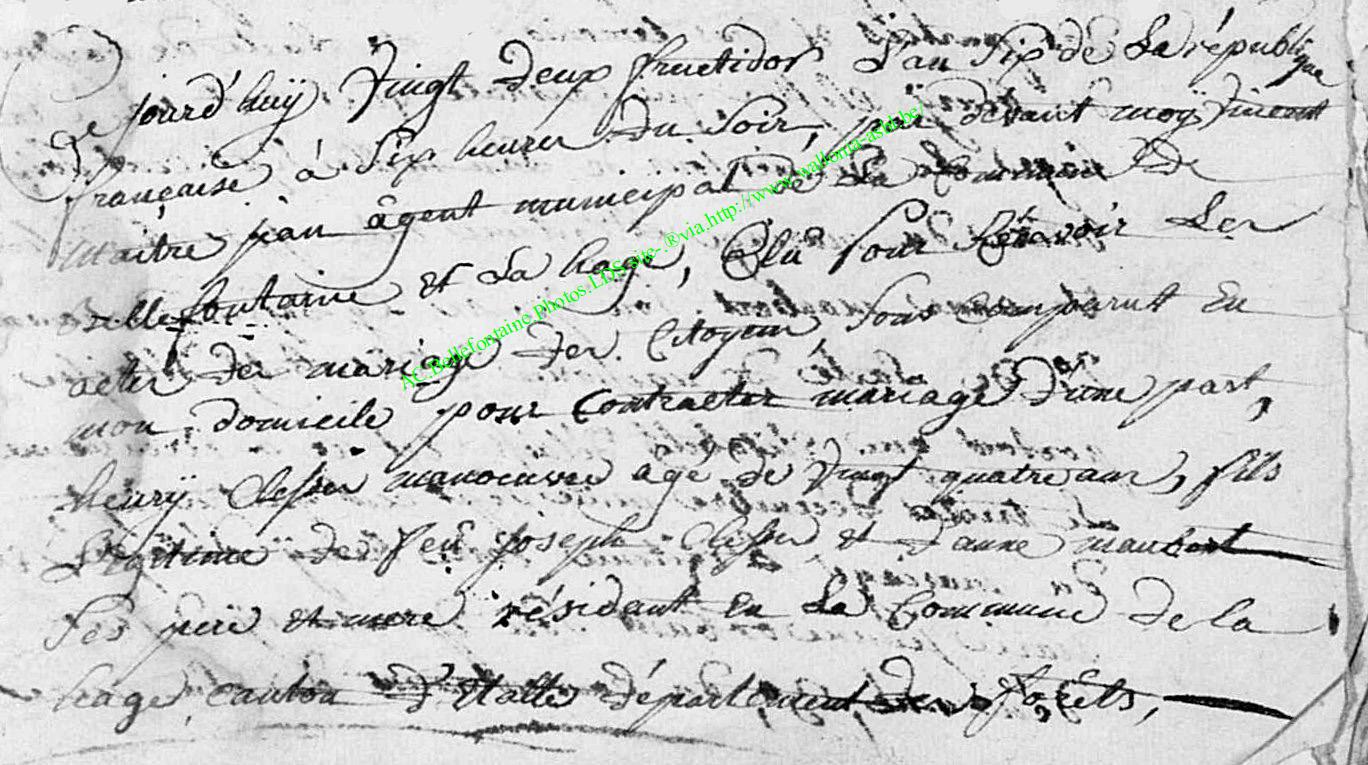 Ce jourd'huÿ Vingt deux fructidor L'an Six de La république
française à Six heures du Soir, par devant moÿ Vincent
maitre jean âgent municipal de La Commune De
Bellefontaine et La hage, Elû pour Recevoir Les
actes de mariage des Citoyens, Sont comparut En
mon domicile pour Contracter mariage D'une part,
henrÿ manoeuvre agé de Vingt quatre ans, fils
Légitime de feu joseph et d'anne maubert
Ses pere et mere résident En La Commune de la
hage canton d'Etalle département des forêts,
AC.Bellefontaine.photos.LDS.site-.®via.http://www.wallonia-asbl.be/